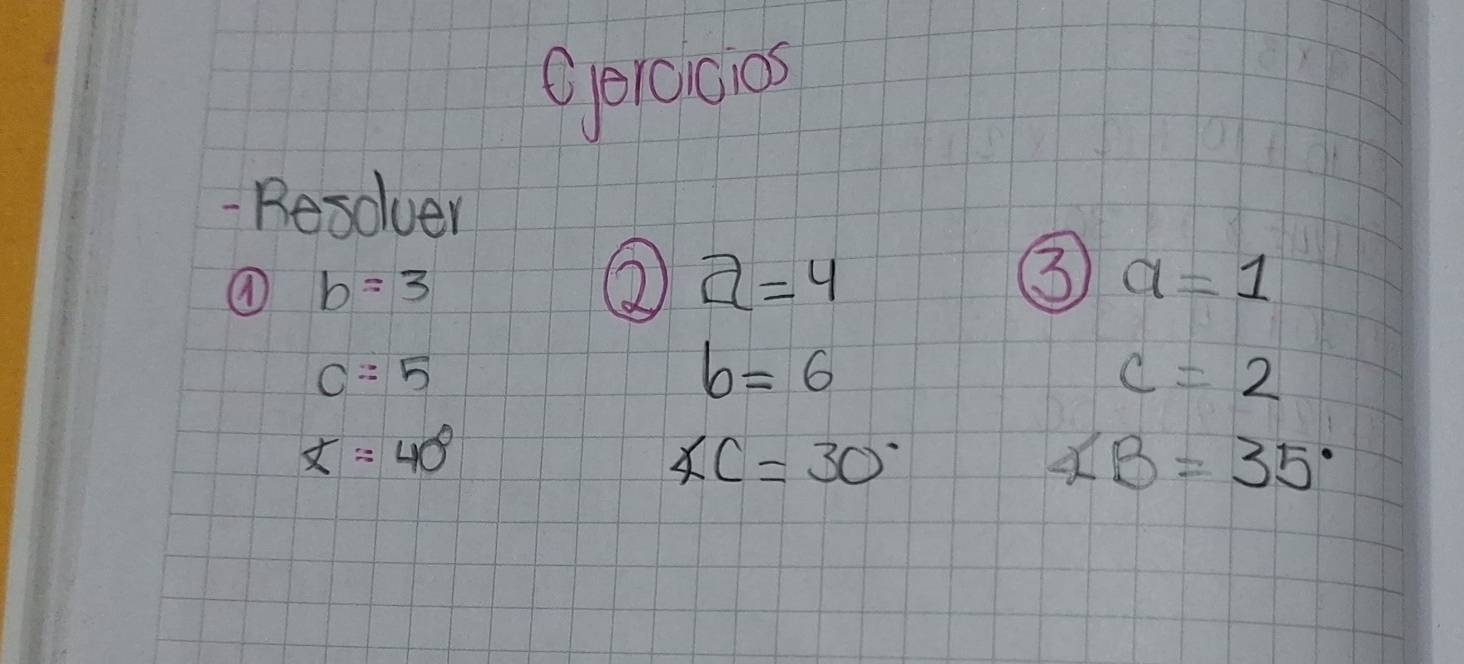 Ejercicios
- Resolver
① b = 3 ② a = 4 ③ a = 1
c = 5 b = 6 c = 2
∡ = 40° ∡C = 30° ∡B = 35°